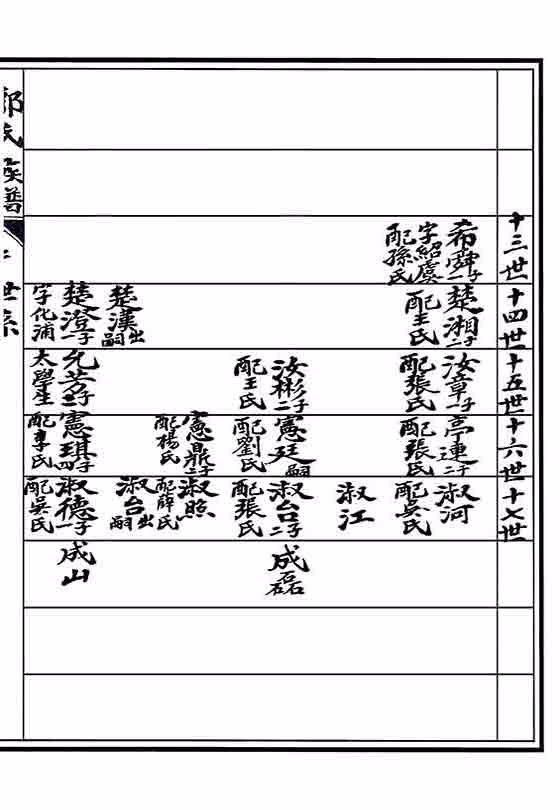 十三世
十四世
十五世
十六世
十七世
希舜一子
字紹虞
配孫氏
楚湘二子
配王氏
楚漢出嗣
楚澄一子
字化浦
汝章一子
配張氏
汝彬二子
配王氏
允芳子
太學生
亭連二子
配張氏
憲廷嗣
配劉氏
憲鼎二子
配楊氏
憲琪四子
配李氏
淑河
配吳氏
淑江
淑台二子
配張氏
淑照
配薛氏
淑台出嗣
淑德一子
配吳氏
成磊
成山
氏族譜
世系